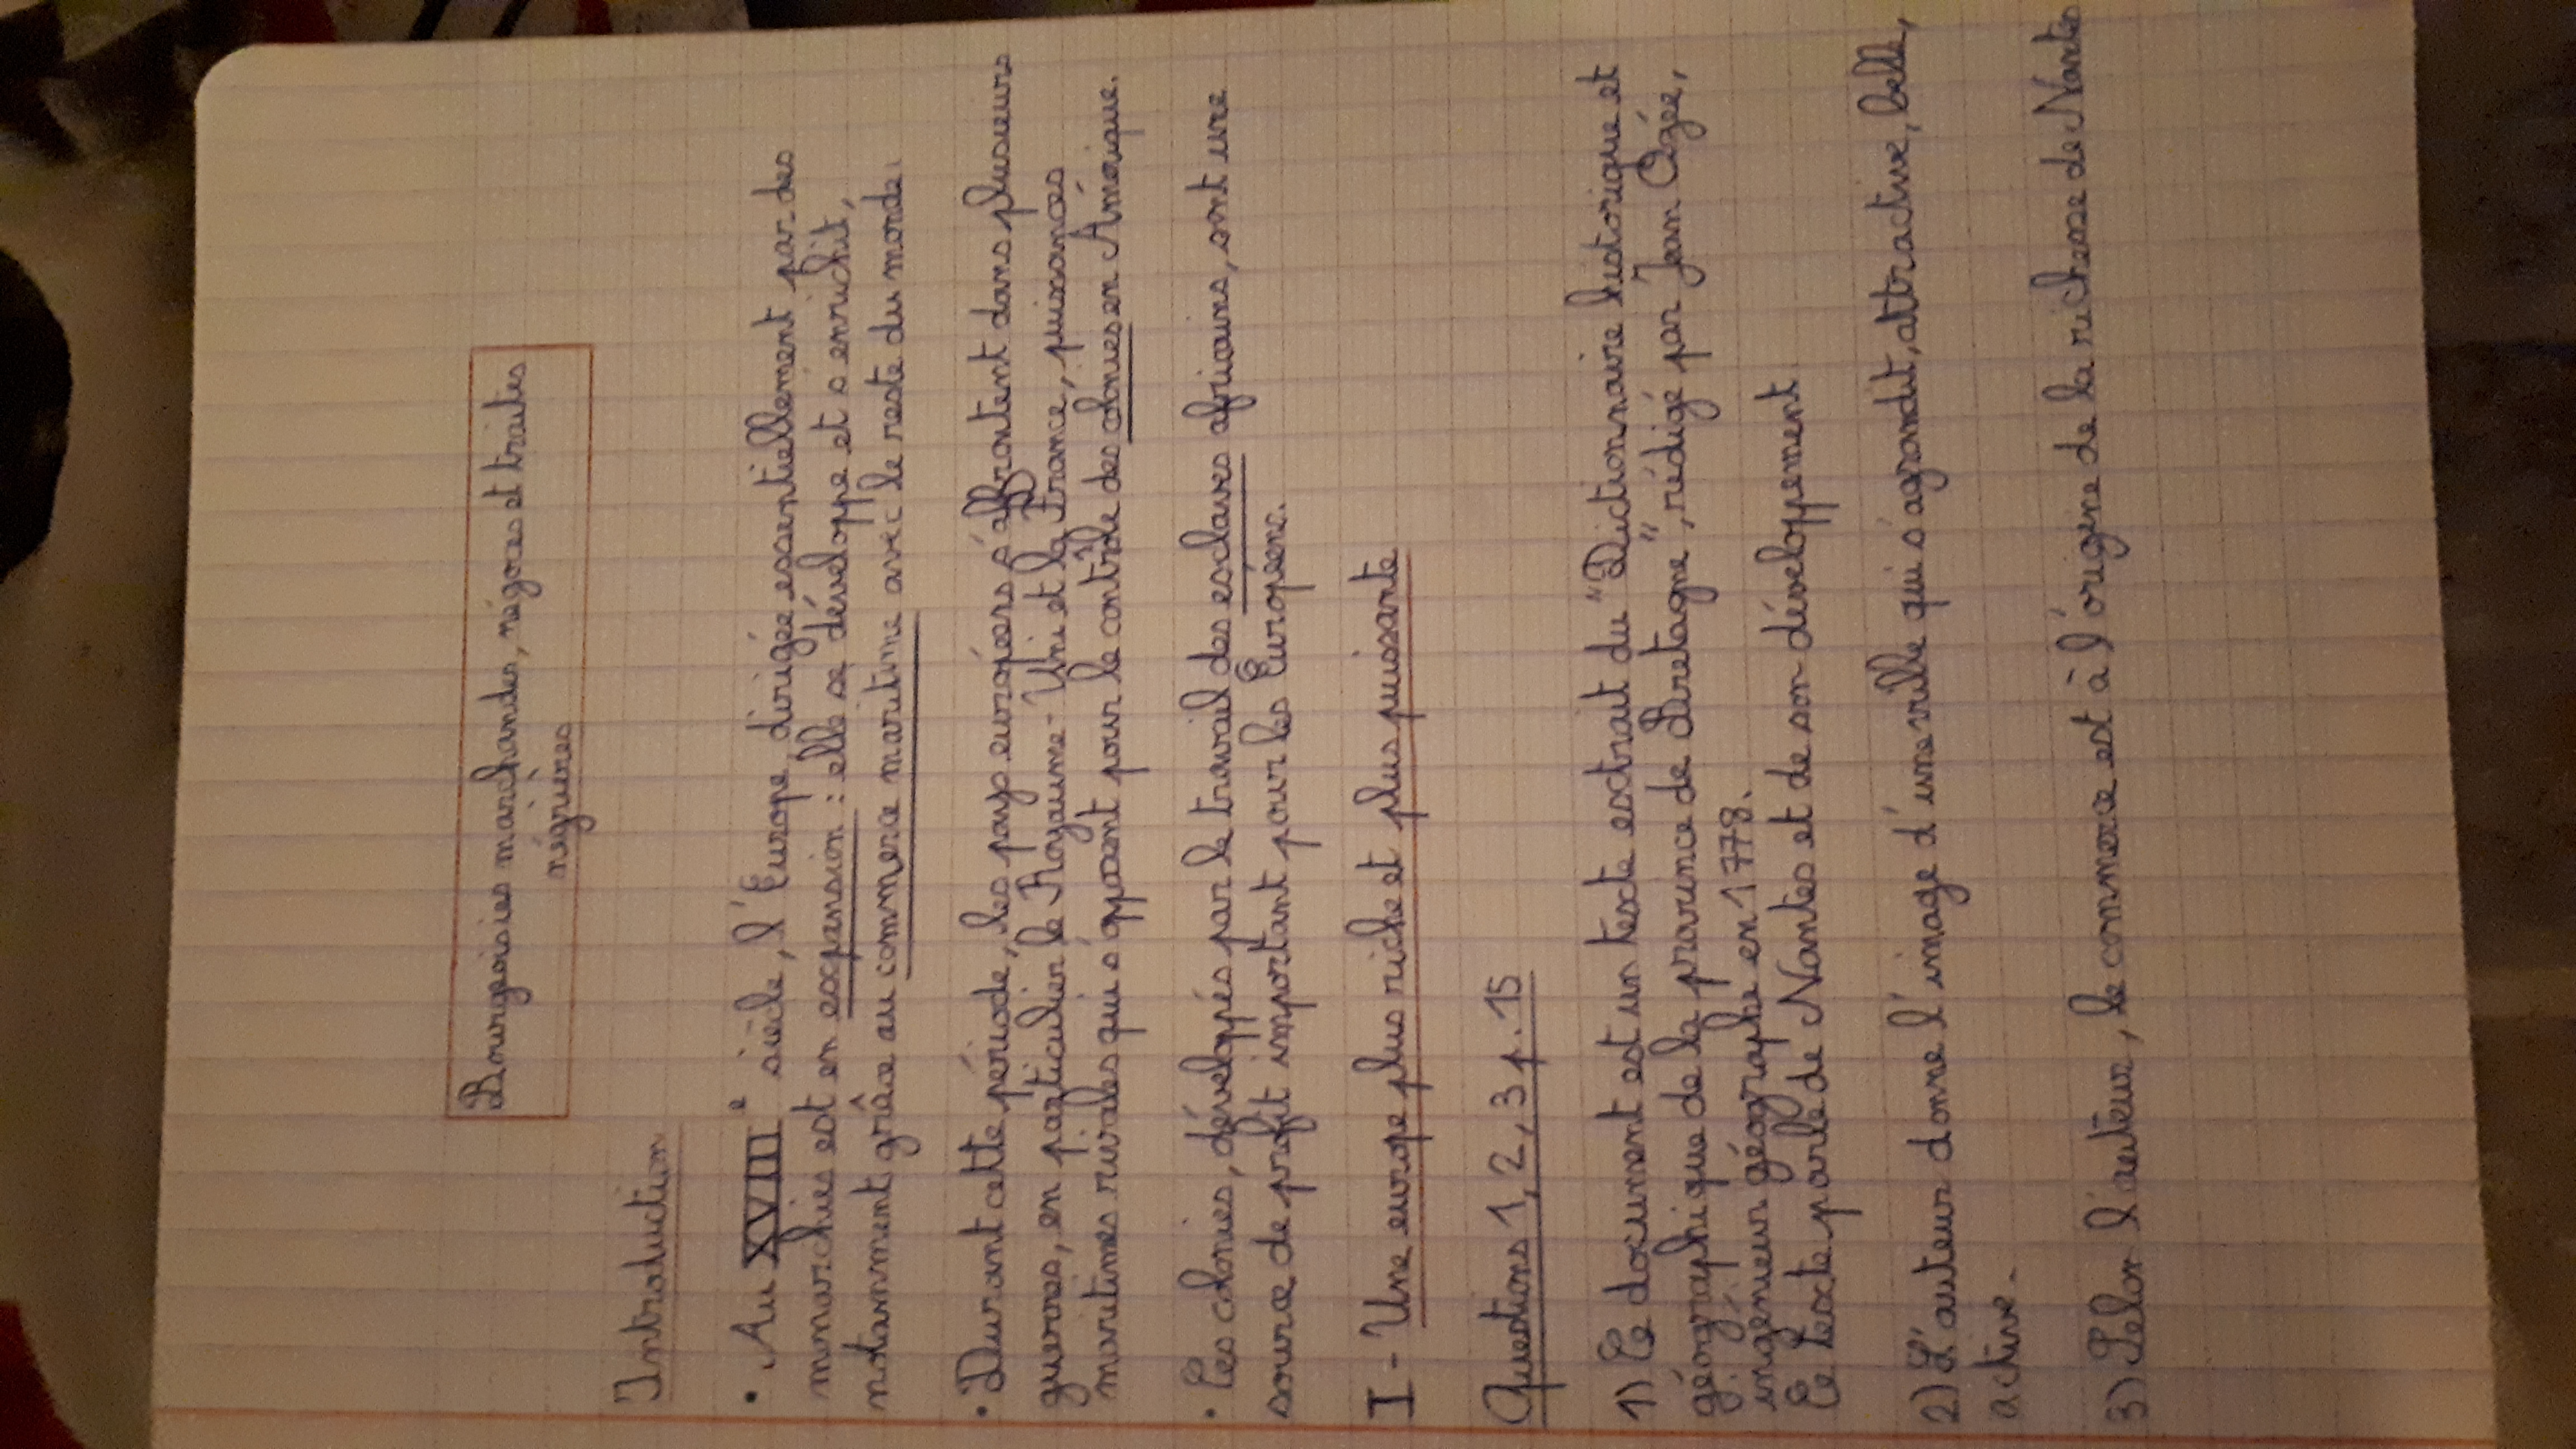 Bourgeoisies marchandes, négoces et traites
négrières
Introduction
• Au XVIIIe siècle, l'Europe, dirigée essentiellement par des
monarchies est en expansion : elle se développe et s'enrichit,
notamment grâce au commerce maritime avec le reste du monde.
• Durant cette période, les pays européens s'affrontent dans plusieurs
guerres, en particulier le Royaume-Uni et la France, puissances
maritimes rivales qui s'opposent pour le contrôle des colonies en Amérique.
• Ces colonies, développés par le travail des esclaves africains, sont une
source de profit important pour les Européens.
I - Une europe plus riche et plus puissante
Questions 1, 2, 3 p. 15
1) Ce document est un texte extrait du "Dictionnaire historique et
géographique de la province de Bretagne", rédigé par Jean Ogée,
ingénieur géographe en 1778.
Ce texte parle de Nantes et de son développement
2) L'auteur donne l'image d'une ville qui s'agrandit, attractive, belle,
active.
3) Selon l'auteur, le commerce est à l'origine de la richesse de Nantes